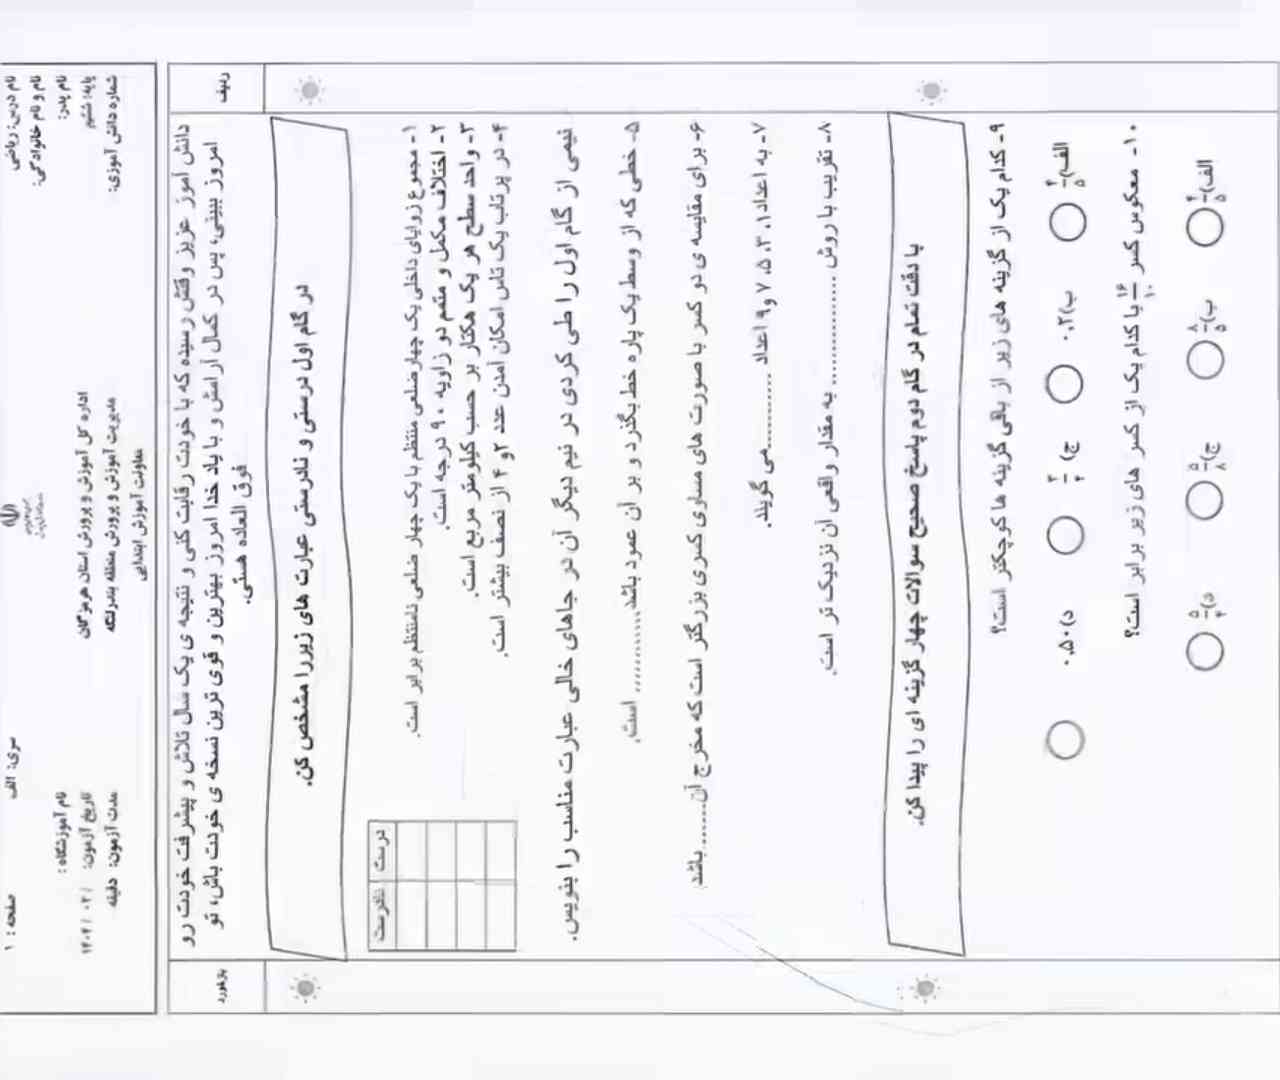 نام درس: ریاضی
نام و نام خانوادگی:
نام پدر:
پایه: ششم
شماره دانش آموزی:
اداره کل آموزش و پرورش استان هرمزگان
مدیریت آموزش و پرورش منطقه بندرلنگه
معاونت آموزش ابتدایی
سری: الف
صفحه: ۱
نام آموزشگاه:
تاریخ آزمون: / ۰۲ / ۱۴۰۴
مدت آزمون: دقیقه
ردیف
بازخورد
دانش آموز عزیز وقتش رسیده که با خودت رقابت کنی و نتیجه ی یک سال تلاش و پیشرفت خودت رو
امروز ببینی، پس در کمال آرامش و با یاد خدا امروز بهترین و قوی ترین نسخه ی خودت باش، تو
فوق العاده هستی.
در گام اول درستی و نادرستی عبارت های زیررا مشخص کن.
درست نادرست
۱- مجموع زوایای داخلی یک چهارضلعی منتظم با یک چهار ضلعی نامنتظم برابر است.
۲- اختلاف مکمل و متمم دو زاویه ۹۰ درجه است.
۳- واحد سطح هر یک هکتار بر حسب کیلومتر مربع است.
۴- در پرتاب یک تاس امکان آمدن عدد ۲و ۴ از نصف بیشتر است.
نیمی از گام اول را طی کردی در نیم دیگر آن در جاهای خالی عبارت مناسب را بنویس.
۵- خطی که از وسط یک پاره خط بگذرد و بر آن عمود باشد............ است.
۶- برای مقایسه ی دو کسر با صورت های مساوی کسری بزرگتر است که مخرج آن....... باشد
۷- به اعداد ۱، ۳، ۵، ۷ و ۹ اعداد ............می گویند.
۸- تقریب با روش ................ به مقدار واقعی آن نزدیک تر است.
با دقت تمام در گام دوم پاسخ صحیح سوالات چهار گزینه ای را پیدا کن.
۹- کدام یک از گزینه های زیر از باقی گزینه ها کوچکتر است؟
الف) ۴/۵ ب) ۰.۲ ج) ۲/۴ د) ۰.۵۰
۱۰- معکوس کسر ۱۶/۱۰ با کدام یک از کسر های زیر برابر است؟
الف) ۴/۵ ب) ۸/۵ ج) ۵/۸ د) ۵/۴